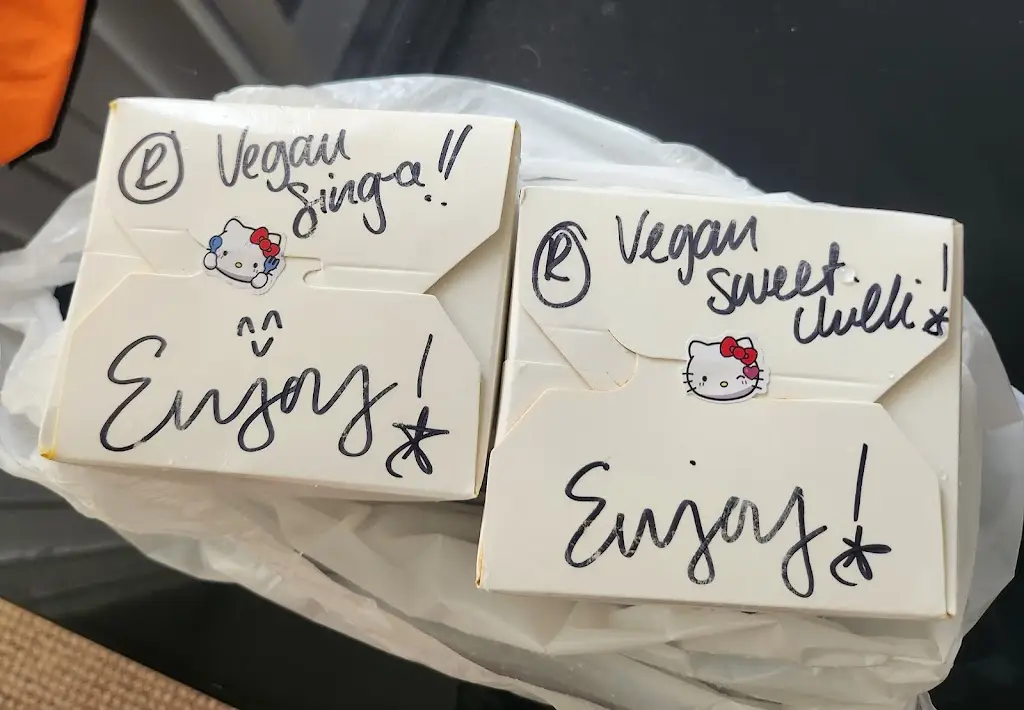 R Vegan
Sing-a!!
^^
Enjoy!
R Vegan
sweet
chilli!
Enjoy!